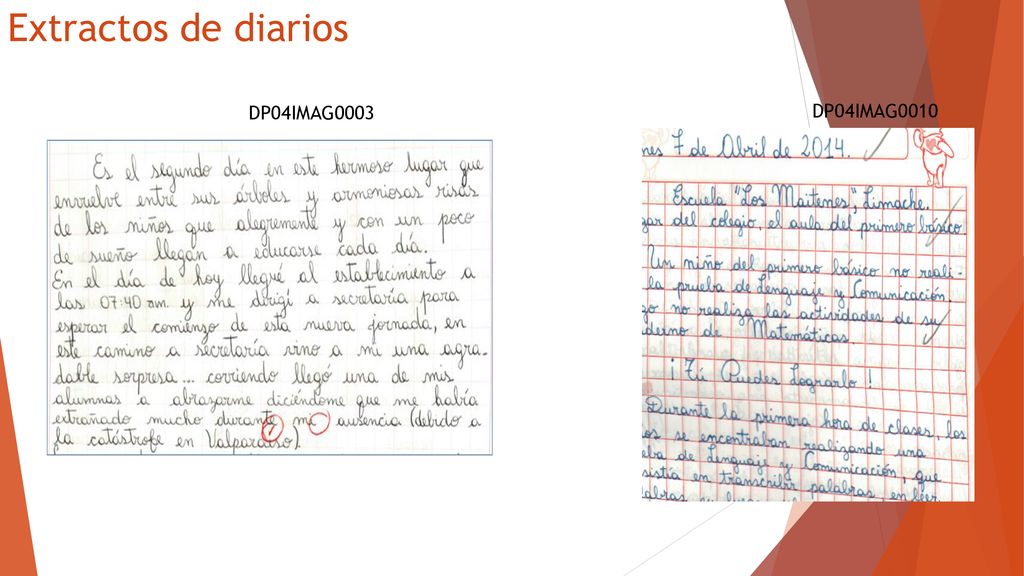 Extractos de diarios
DP04IMAG0003
Es el segundo día en este hermoso lugar que
envuelve entre sus árboles y armoniosas risas
de los niños que alegremente y con un poco
de sueño llegan a educarse cada día.
En el día de hoy llegué al establecimiento a
las 07:40 am. y me dirigí a secretaría para
esperar el comienzo de esta nueva jornada, en
este camino a secretaría vino a mi una agra-
dable sorpresa... corriendo llegó una de mis
alumnas a abrazarme diciéndome que me había
extrañado mucho durante mi ausencia (debido a
la catástrofe en Valparaíso).
DP04IMAG0010
nes 7 de Abril de 2014.
Escuela "Los Maitenes", Limache.
gar del colegio, el aula del primero básico
Un niño del primero básico no reali-
la prueba de Lenguaje y Comunicación.
go no realiza las actividades de su
derno de Matemáticas.
¡Tú Puedes Lograrlo!
Durante la primera hora de clases, los
os se encontraban realizando una
eba de Lenguaje y Comunicación, que
sistía en transcribir palabras, en leer